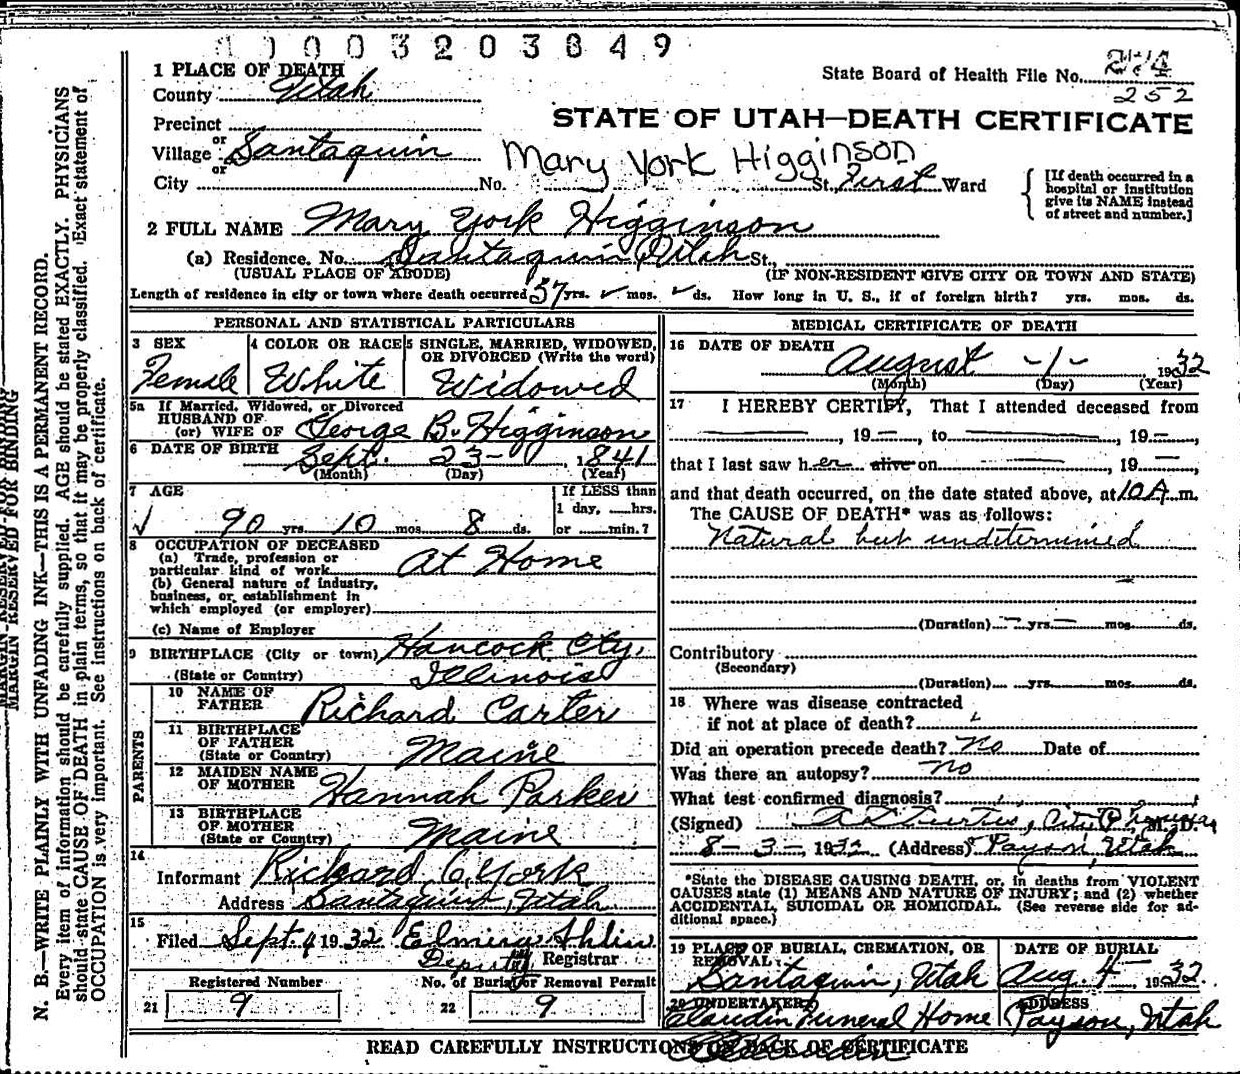 00003203649
1 PLACE OF DEATH
State Board of Health File No.
County Utah
252
Precinct
STATE OF UTAH—DEATH CERTIFICATE
or
Village Santaquin
or
Mary York Higginson
City No. St, First Ward
[If death occurred in a hospital or institution give its NAME instead of street and number.]
2 FULL NAME Mary York Higginson
(a) Residence. No. Santaquin, Utah St.,
(USUAL PLACE OF ABODE) (IF NON-RESIDENT GIVE CITY OR TOWN AND STATE)
Length of residence in city or town where death occurred 57 yrs. ✓ mos. ✓ ds. How long in U. S., if of foreign birth? yrs. mos. ds.
PERSONAL AND STATISTICAL PARTICULARS
3 SEX
Female
4 COLOR OR RACE
White
5 SINGLE, MARRIED, WIDOWED, OR DIVORCED (Write the word)
Widowed
5a If Married, Widowed, or Divorced
HUSBAND OF
(or) WIFE OF George B. Higginson
6 DATE OF BIRTH Sept. 23- 1841
(Month) (Day) (Year)
7 AGE
✓ 90 yrs. 10 mos. 8 ds.
If LESS than
1 day, hrs.
or min.?
8 OCCUPATION OF DECEASED
(a) Trade, profession or
particular kind of work At Home
(b) General nature of industry,
business, or establishment in
which employed (or employer)
(c) Name of Employer
9 BIRTHPLACE (City or town) Hancock Cty,
(State or Country) Illinois
PARENTS
10 NAME OF
FATHER Richard Carter
11 BIRTHPLACE
OF FATHER
(State or Country) Maine
12 MAIDEN NAME
OF MOTHER Hannah Parker
13 BIRTHPLACE
OF MOTHER
(State or Country) Maine
14
Informant Richard C. York
Address Santaquin, Utah
15
Filed Sept. 4 1932 Elmira Ahlin
Deputy Registrar
Registered Number No. of Burial or Removal Permit
21 9 22 9
MEDICAL CERTIFICATE OF DEATH
16 DATE OF DEATH
August -1- 1932
(Month) (Day) (Year)
17 I HEREBY CERTIFY, That I attended deceased from
, 19 —, to , 19 —,
that I last saw her alive on , 19 —,
and that death occurred, on the date stated above, at 10 A m.
The CAUSE OF DEATH* was as follows:
Natural but undetermined
(Duration) yrs. mos. ds.
Contributory
(Secondary)
(Duration) yrs. mos. ds.
18 Where was disease contracted
if not at place of death?
Did an operation precede death? No Date of
Was there an autopsy? no
What test confirmed diagnosis?
(Signed) A L Curtis, City M. D.
8-3-, 1932 (Address) Payson, Utah
*State the DISEASE CAUSING DEATH, or, in deaths from VIOLENT
CAUSES state (1) MEANS AND NATURE OF INJURY; and (2) whether
ACCIDENTAL, SUICIDAL OR HOMICIDAL. (See reverse side for ad-
ditional space.)
19 PLACE OF BURIAL, CREMATION, OR
REMOVAL
Santaquin, Utah
DATE OF BURIAL
Aug. 4- 1932.
20 UNDERTAKER
Claudin Funeral Home
ADDRESS
Payson, Utah
READ CAREFULLY INSTRUCTIONS ON BACK OF CERTIFICATE
MARGIN RESERVED FOR BINDING
N. B.—WRITE PLAINLY WITH UNFADING INK—THIS IS A PERMANENT RECORD.
Every item of information should be carefully supplied. AGE should be stated EXACTLY. PHYSICIANS
should state CAUSE OF DEATH in plain terms, so that it may be properly classified. Exact statement of
OCCUPATION is very important. See instructions on back of certificate.